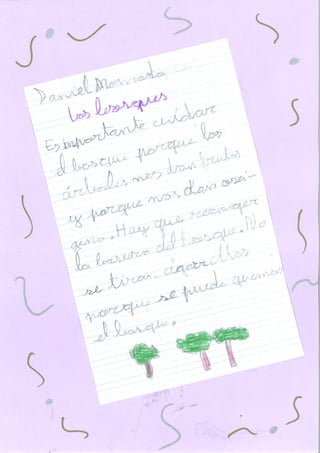 Daniel
los bosques
Es importante cuidar
el bosque porque los
árboles nos dan frutos
y porque nos dan oxi-
geno. Hay que recoger
la basura del bosque. No
se tiran cigarrillos
porque se puede quemar
el bosque.